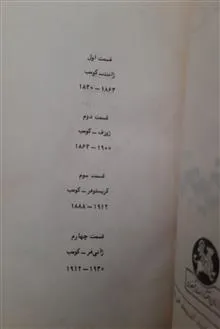 قسمت اول
ژانت ــ کومب
۱۸۶۳ ــ ۱۸۳۰
قسمت دوم
ژوزف ــ کومب
۱۹۰۰ ــ ۱۸۶۳
قسمت سوم
کریستوفر ــ کومب
۱۹۱۲ ــ ۱۸۸۸
قسمت چهارم
ژانی‌فر ــ کومب
۱۹۳۰ ــ ۱۹۱۲